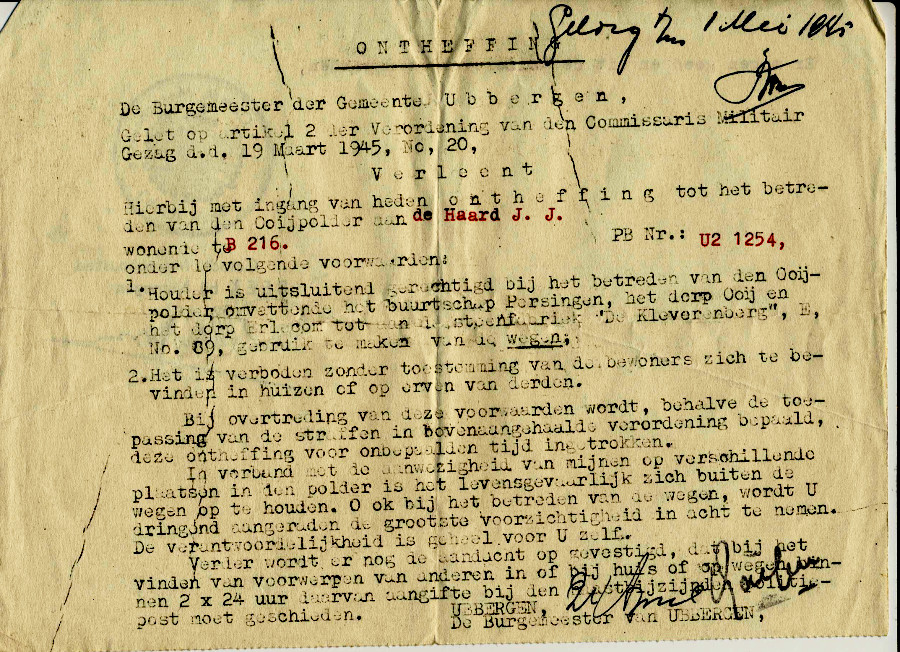 1 Mei 1945
ONTHEFFING
De Burgemeester der Gemeente Ubbergen,
Gelet op artikel 2 der Verordening van den Commissaris Militair
Gezag d.d. 19 Maart 1945, No, 20,
Verleent
Hierbij met ingang van heden ontheffing tot het betre-
den van den Ooijpolder aan de Haard J. J.
wonende te B 216. PB Nr.: U2 1254,
onder de volgende voorwaarden:
1. Houder is uitsluitend gerechtigd bij het betreden van den Ooij-
polder omvattende het buurtschap Persingen, het dorp Ooij en
het dorp Erlecom tot aan de steenfabriek "De Kleverenberg", E,
No. 89, gebruik te maken van de wegen;
2. Het is verboden zonder toestemming van de bewoners zich te be-
vinden in huizen of op erven van derden.
Bij overtreding van deze voorwaarden wordt, behalve de toe-
passing van de straffen in bovenaangehaalde verordening bepaald,
deze ontheffing voor onbepaalden tijd ingetrokken.
In verband met de aanwezigheid van mijnen op verschillende
plaatsen in den polder is het levensgevaarlijk zich buiten de
wegen op te houden. O ok bij het betreden van de wegen, wordt U
dringend aangeraden de grootste voorzichtigheid in acht te nemen.
De verantwoordelijkheid is geheel voor U zelf.
Verder wordt er nog de aandacht op gevestigd, dat bij het
vinden van voorwerpen van anderen in of bij huis of op wegen bin-
nen 2 x 24 uur daarvan aangifte bij den politie-
post moet geschieden.
UBBERGEN,
De Burgemeester van UBBERGEN,